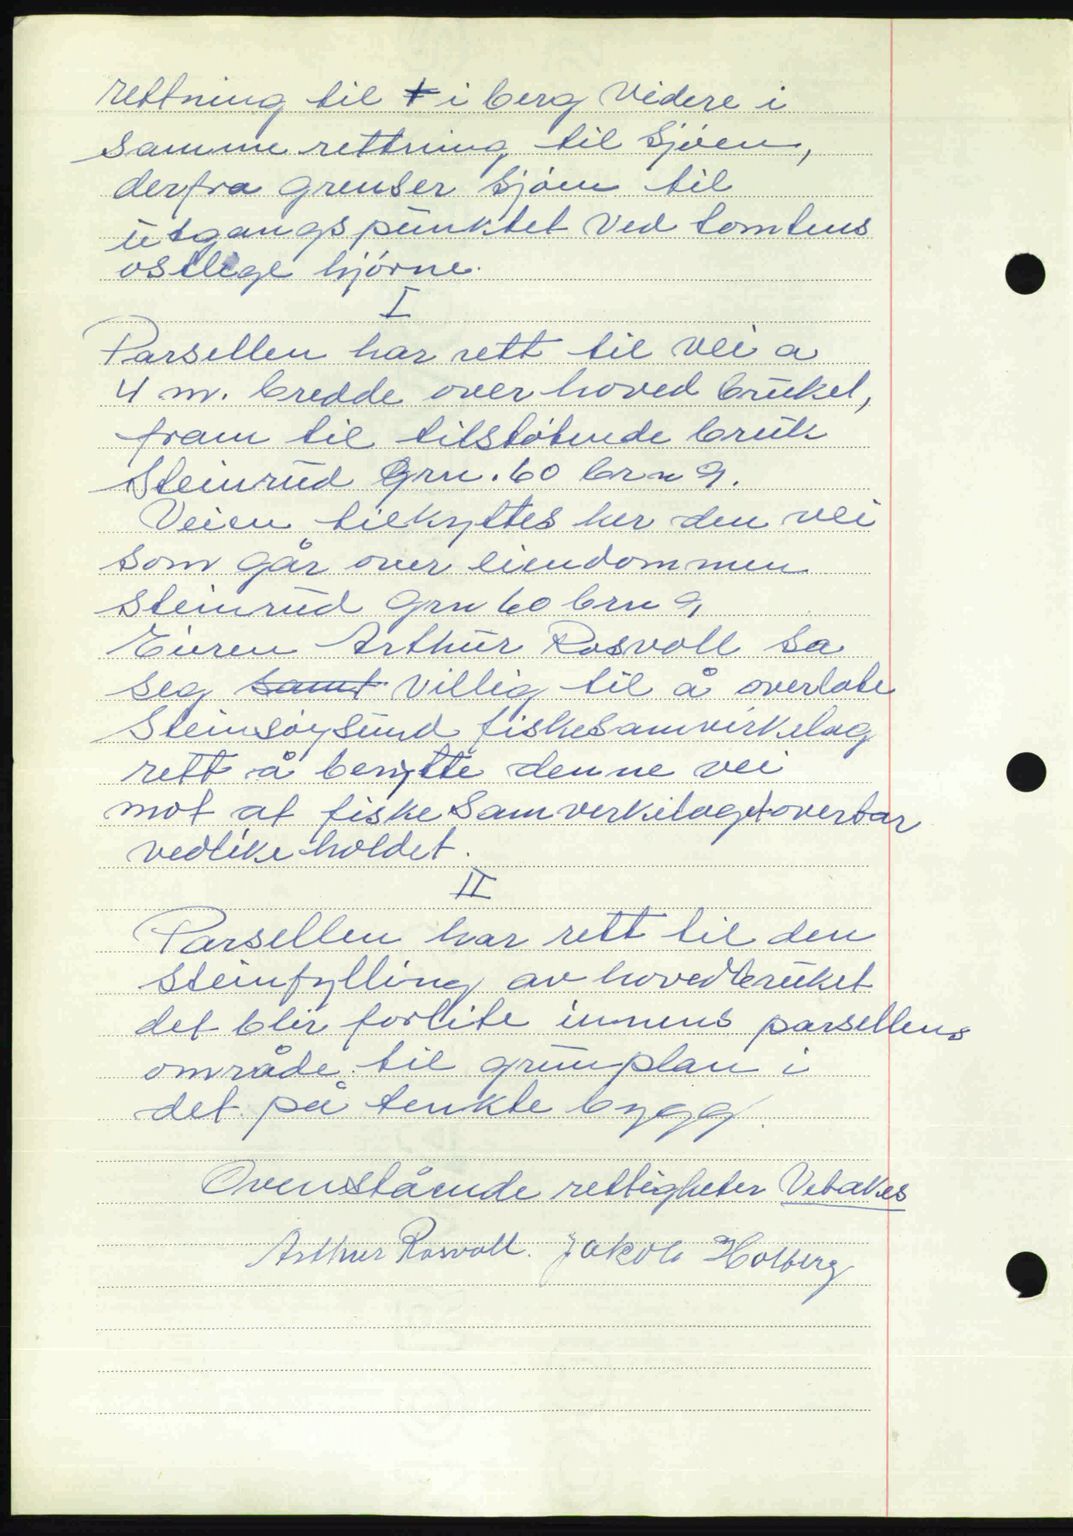 rettning til + i berg Videre i
samme rettning til Sjøen,
derfra grenser Sjøen til
utgangspunktet Ved tomtens
østlige hjørne.
I
Parsellen har rett til vei a
4 m. bredde over hoved bruket,
fram til tilstøtende bruk
Steinrud Grn. 60 brn 9.
Veien tilknyttes her den vei
som går over eiendommen
Steinrud Grn 60 brn 9
Eieren Arthur Rosvoll sa
seg samt villig til å overlate
Steinsøysund fiskesamvirkelag
rett å benytte denne vei
mot at fiske Samverkilaget overtar
vedlike holdet.
II
Parsellen har rett til den
steinfylling av hovedbruket
det blir forlite innens parsellens
område til grunplan i
det på tenkte bygg.
Ovenstående rettigheter Vetakes
Arthur Rosvoll. Jakob Holberg